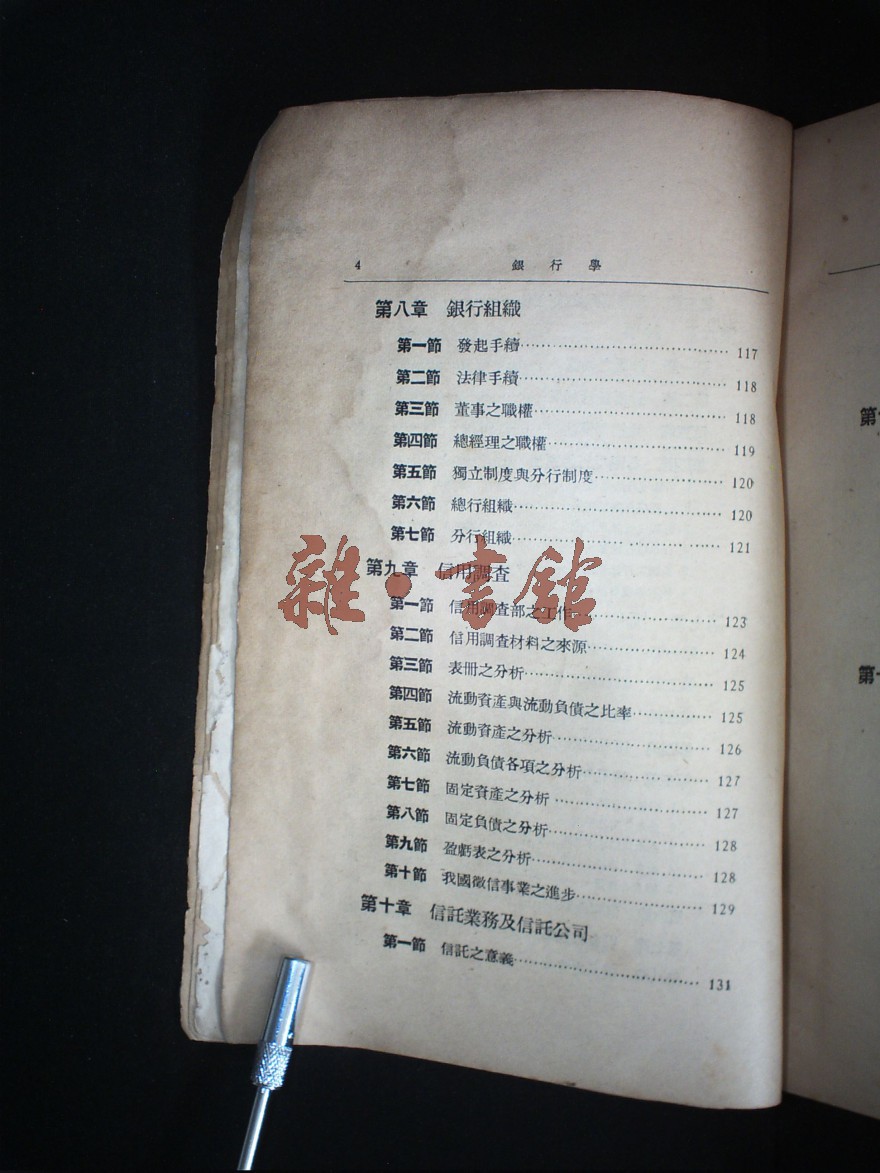 4 銀行學
第八章 銀行組織
第一節 發起手續……117
第二節 法律手續……118
第三節 董事之職權……118
第四節 總經理之職權……119
第五節 獨立制度與分行制度……120
第六節 總行組織……120
第七節 分行組織……121
第九章 信用調查
第一節 信用調查部之工作……123
第二節 信用調查材料之來源……124
第三節 表冊之分析……125
第四節 流動資產與流動負債之比率……125
第五節 流動資產之分析……126
第六節 流動負債各項之分析……127
第七節 固定資產之分析……127
第八節 固定負債之分析……128
第九節 盈虧表之分析……128
第十節 我國徵信事業之進步……129
第十章 信託業務及信託公司
第一節 信託之意義……131
雜·書館
第
第